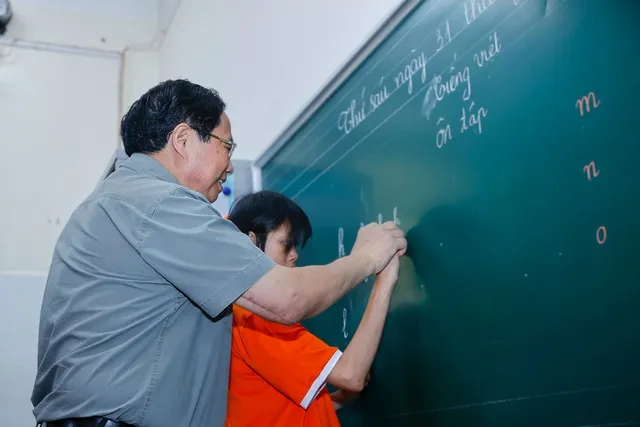 Thứ sáu ngày 31 thá
Tiếng việt
ôn tập
m
n
o
h
l